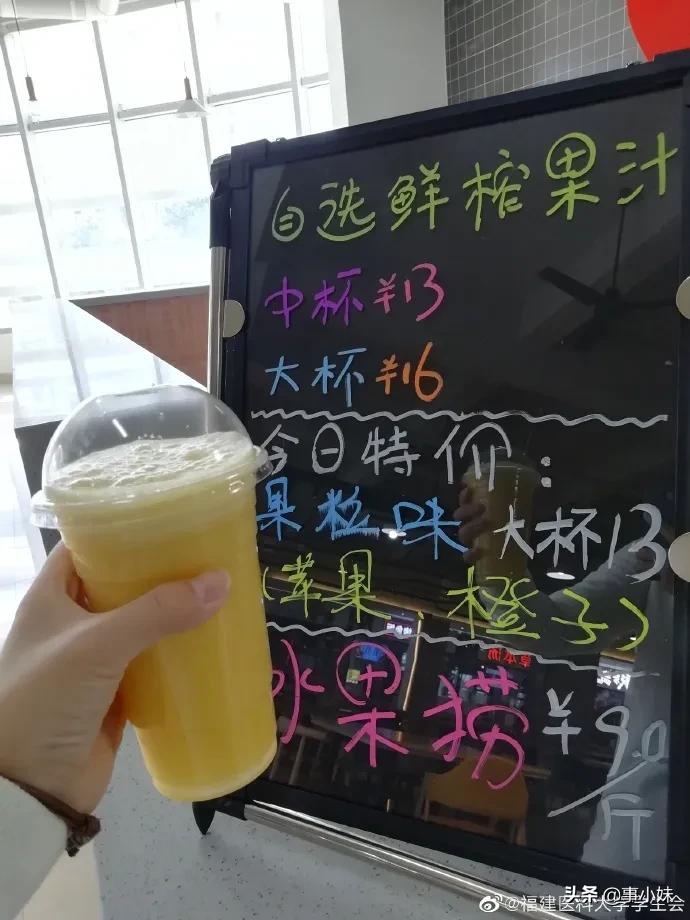 自选鲜榨果汁
中杯¥13
大杯¥16
今日特价:
果粒味 大杯13
(苹果、橙子)
水果捞 ¥9.0/斤
头条@事小妹
@福建医科大学学生会